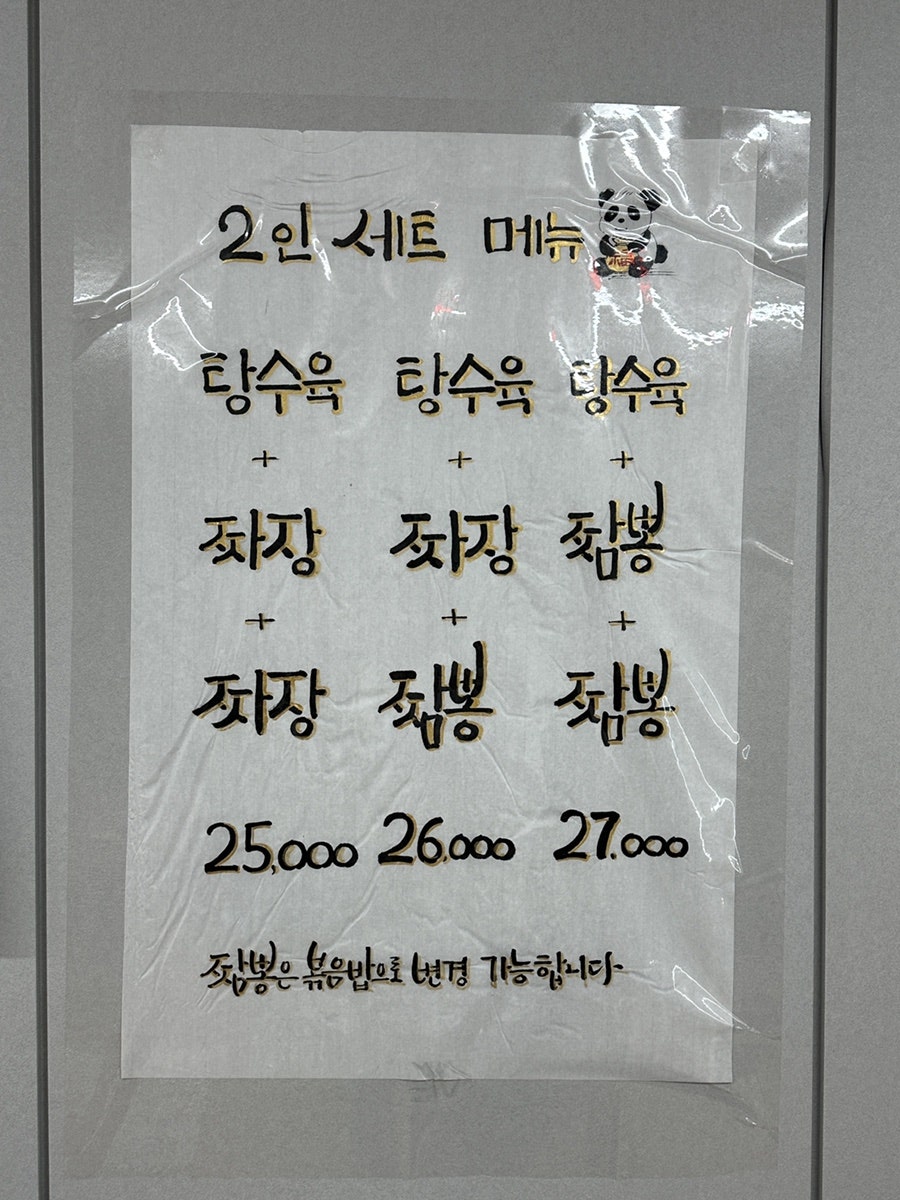 2인 세트 메뉴
탕수육 탕수육 탕수육
+ + +
짜장 짜장 짬뽕
+ + +
짜장 짬뽕 짬뽕
25,000 26,000 27,000
짬뽕은 볶음밥으로 변경 가능합니다